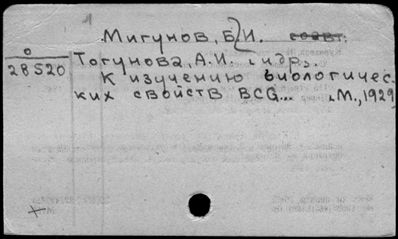 1
Мигунов, Б. И. соавт.
0
28520
Тогунова, А.И. и др.
К изучению биологичес-
ких свойств BCG... М., 1929